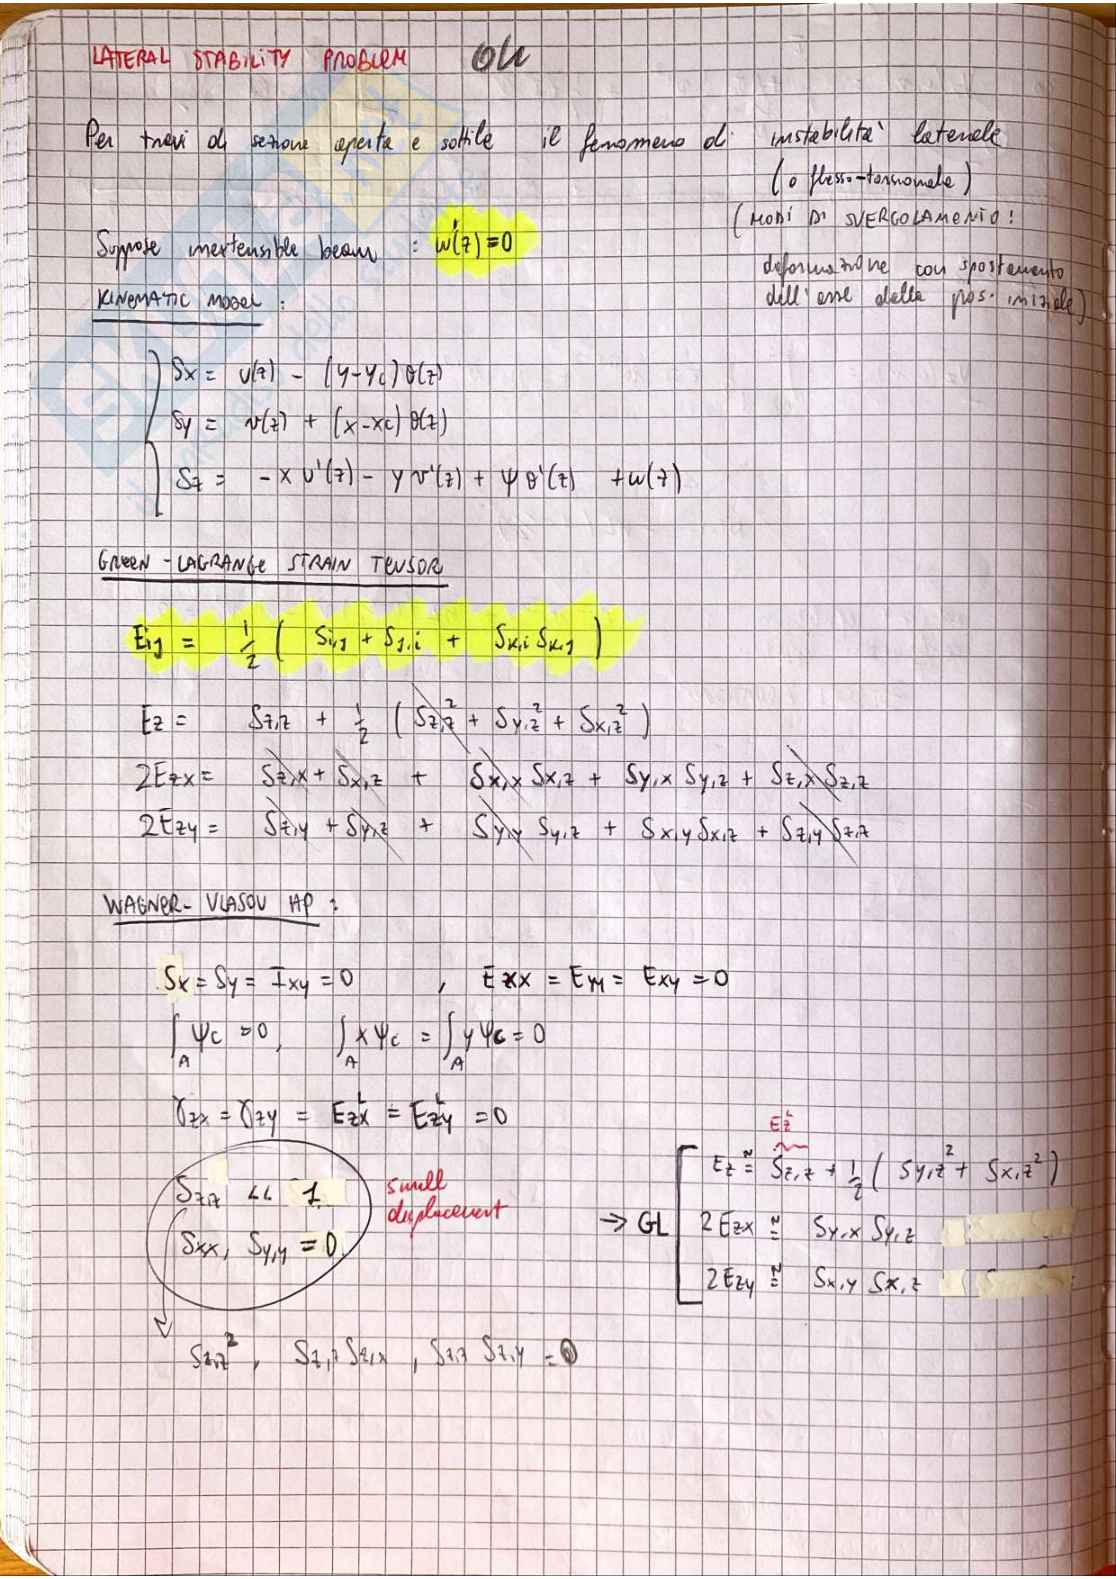 LATERAL STABILITY PROBLEM OK
Per travi di sezione aperta e sottile il fenomeno di instabilità laterale
(o flesso-torsionale)
(MODI DI SVERGOLAMENTO:
deformazione con spostamento
dell'asse dalla pos. iniziale)
Suppose inextensible beam : w'(z)=0
KINEMATIC MODEL :
Sx = u(z) - (y-yc) θ(z)
Sy = v(z) + (x-xc) θ(z)
Sz = -x u'(z) - y v'(z) + ψ θ'(z) + w(z)
GREEN-LAGRANGE STRAIN TENSOR
Eij = 1/2 ( Si,j + Sj,i + Sk,i Sk,j )
Ez = Sz,z + 1/2 ( Sz,z² + Sy,z² + Sx,z² )
2Ezx = Sz,x + Sx,z + Sx,x Sx,z + Sy,x Sy,z + Sz,x Sz,z
2Ezy = Sz,y + Sy,z + Sy,y Sy,z + Sx,y Sx,z + Sz,y Sz,z
WAGNER-VLASOV HP :
Sx = Sy = Ixy = 0 , Exx = Eyy = Exy = 0
∫A ψc = 0, ∫A x ψc = ∫A y ψc = 0
γzx = γzy = Ezx^L = Ezy^L = 0
Sz,z << 1
Sxx, Sy,y = 0
small
displacement
Ez^L
→ GL
Ez ≅ Sz,z + 1/2 ( Sy,z² + Sx,z² )
2Ezx ≅ Sy,x Sy,z
2Ezy ≅ Sx,y Sx,z
Sz,z² , Sz,z Sz,x , Sz,z Sz,y = 0